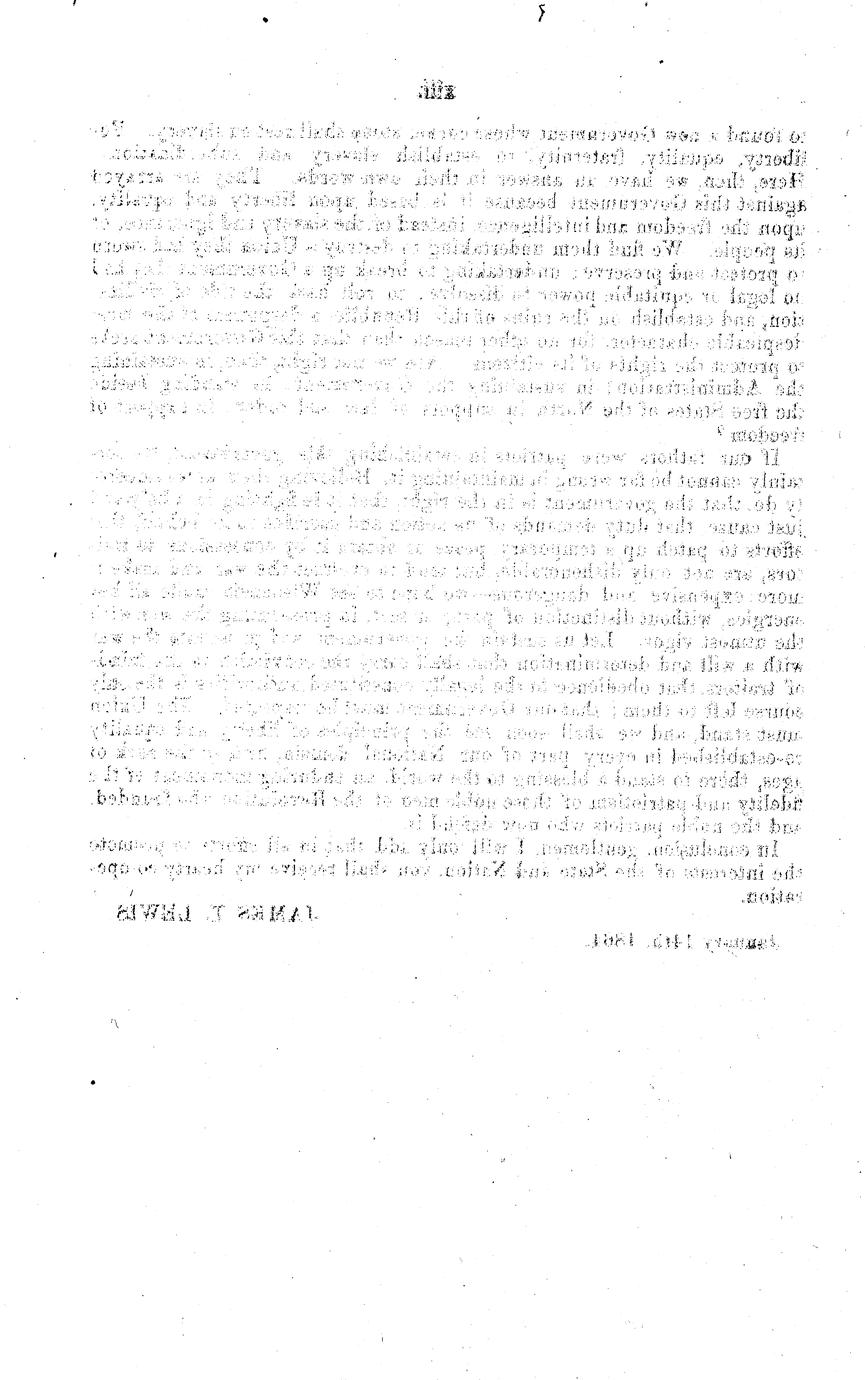 xiii.
to found a new Government whose corner stone shall rest on slavery. For
liberty, equality, fraternity, to establish slavery and subordination.
Here, then, we have an answer in their own words. They are arrayed
against this Government because it is based upon liberty and equality,
upon the freedom and intelligence instead of the slavery and ignorance, of
its people. We find them undertaking to destroy a Union they had sworn
to protect and preserve; undertaking to break up a Government they had
no legal or equitable power to dissolve, to roll back the tide of
and establish on the ruins of this Republic a
despicable character, for no other reason than that the Government seeks
to protect the rights of its citizens. Are we not right, then, in sustaining
the Administration; in sustaining the Government; in standing beside
the free States of the North in support of law and order, in support of
freedom?
If our fathers were patriots in establishing this government, we cer-
tainly cannot be far wrong in maintaining it. Believing then as we
do, that the government is in the right, that it is fighting in a
just cause, that duty demands of us men and
efforts to patch up a temporary peace or secure it by concessions to trai-
tors, are not only dishonorable, but tend to the war and make it
more expensive and dangerous—we hope to see Wisconsin unite all her
energies, without distinction of party, in prosecuting the war with
the utmost vigor. Let us sustain the government and prosecute the war
with a will and determination that shall carry the conviction to the minds
of traitors that obedience to the legally constituted authorities is the only
course left to them; that our Government must be The Union
must stand, and we shall soon see the principles of liberty and equality
re-established in every part of our National domain, as the rock of
ages, there to stand a blessing to the world, an enduring monument of the
fidelity and patriotism of those noble men of the Revolution who founded,
and the noble patriots who now defend it.
In conclusion, gentlemen, I will only add that in all efforts to promote
the interests of the State and Nation, you shall receive my hearty co-ope-
ration.
JAMES T. LEWIS
January 14th, 1864.